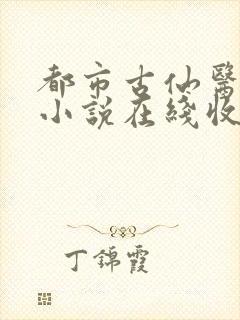 都市古仙醫
小說在綫收
丁錦霞